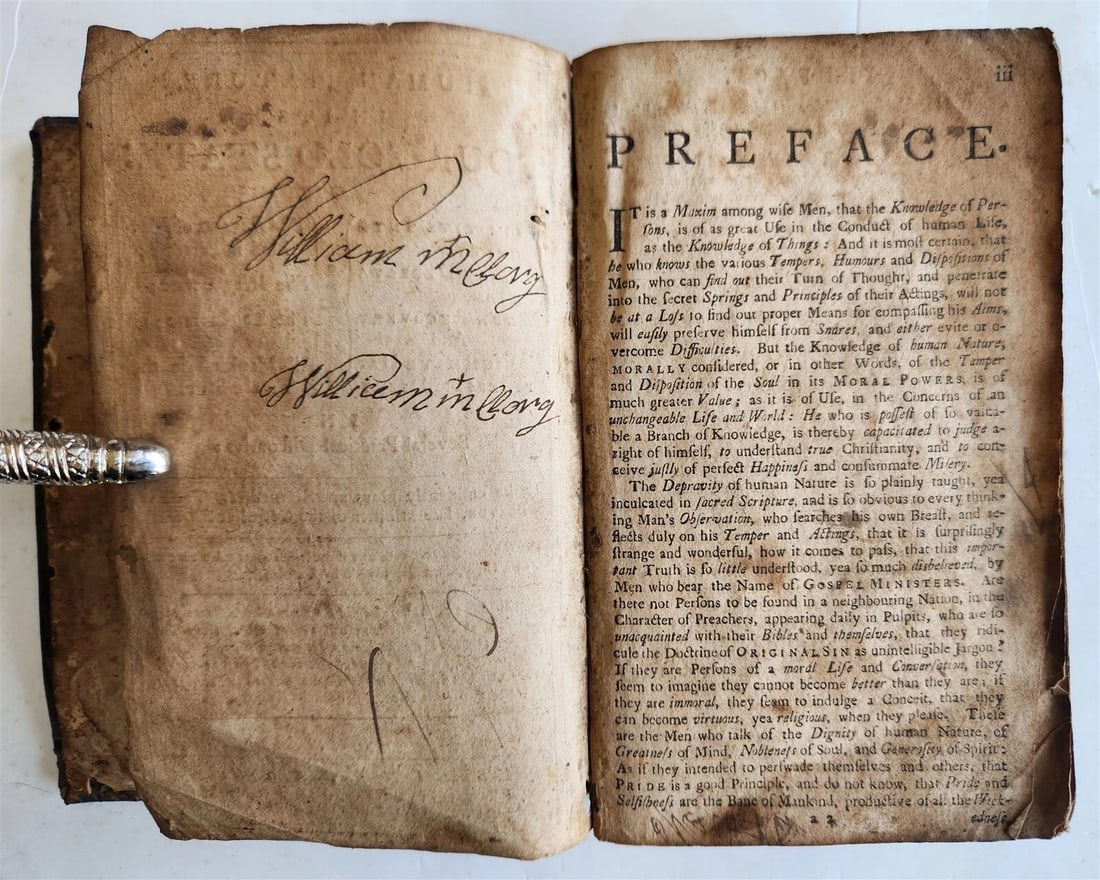 William
William
iii
PREFACE.
IT is a Maxim among wiſe Men, that the Knowledge of Per-
ſons, is of as great Uſe in the Conduct of human Life,
as the Knowledge of Things: And it is moſt certain, that
he who knows the various Tempers, Humours and Diſpoſitions of
Men, who can find out their Turn of Thought, and penetrate
into the ſecret Springs and Principles of their Actings, will not
be at a Loſs to find out proper Means for compaſſing his Aims,
will eaſily preſerve himſelf from Snares, and either evite or o-
vercome Difficulties. But the Knowledge of human Nature,
MORALLY conſidered, or in other Words, of the Temper
and Diſpoſition of the Soul in its MORAL POWERS, is of
much greater Value; as it is of Uſe, in the Concerns of an
unchangeable Life and World: He who is poſſeſt of ſo valua-
ble a Branch of Knowledge, is thereby capacitated to judge a-
right of himſelf, to underſtand true Chriſtianity, and to con-
ceive juſtly of perfect Happineſs and conſummate Miſery.
The Depravity of human Nature is ſo plainly taught, yea
inculcated in ſacred Scripture, and is ſo obvious to every think-
ing Man's Obſervation, who ſearches his own Breaſt, and re-
flects duly on his Temper and Actings, that it is ſurpriſingly
ſtrange and wonderful, how it comes to paſs, that this impor-
tant Truth is ſo little underſtood, yea ſo much disbelieved, by
Men who bear the Name of GOSPEL MINISTERS. Are
there not Perſons to be found in a neighbouring Nation, in the
Character of Preachers, appearing daily in Pulpits, who are ſo
unacquainted with their Bibles and themſelves, that they ridi-
cule the Doctrine of ORIGINAL SIN as unintelligible Jargon?
If they are Perſons of a moral Life and Converſation, they
ſeem to imagine they cannot become better than they are; if
they are immoral, they ſeam to indulge a Conceit, that they
can become virtuous, yea religious, when they pleaſe. Theſe
are the Men who talk of the Dignity of human Nature, of
Greatneſs of Mind, Nobleneſs of Soul, and Generoſity of Spirit:
As if they intended to perſwade themſelves and others, that
PRIDE is a good Principle, and do not know, that Pride and
Selfiſhneſs are the Bane of Mankind, productive of all the Wick-
a 2
edneſs